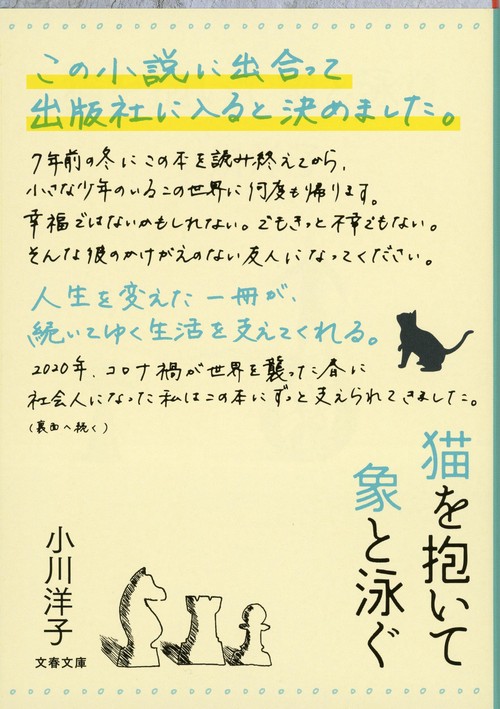 この小説に出合って
出版社に入ると決めました。
7年前の冬にこの本を読み終えてから、
小さな少年のいるこの世界に何度も帰ります。
幸福ではないかもしれない。でもきっと不幸でもない。
そんな彼のかけがえのない友人になってください。
人生を変えた一冊が、
続いてゆく生活を支えてくれる。
2020年、コロナ禍が世界を襲った春に
社会人になった私はこの本にずっと支えられてきました。
(裏面へ続く)
猫を抱いて
象と泳ぐ
小川洋子
文春文庫